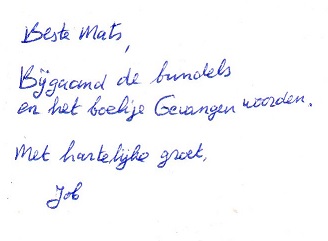 Beste Mats,
Bijgaand de bundels
en het boekje Gevangen woorden.
Met hartelijke groet,
Job